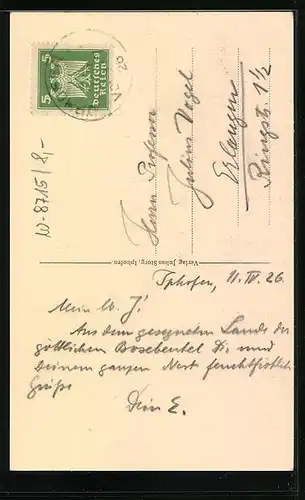 5 5
Deutsches
Reich
W-8715/8,-
Herrn Professor
Julius Nagel
Erlangen
Ringstr. 1 1/2
Verlag Julius Storg, Iphofen
Iphofen, 11. IV. 26
Mein lb. J!
Aus dem gesegneten Lande des
göttlichen Boxbeutel Dir und
Deinem ganzen Nest feuchtfröhliche
Grüße
Dein E.